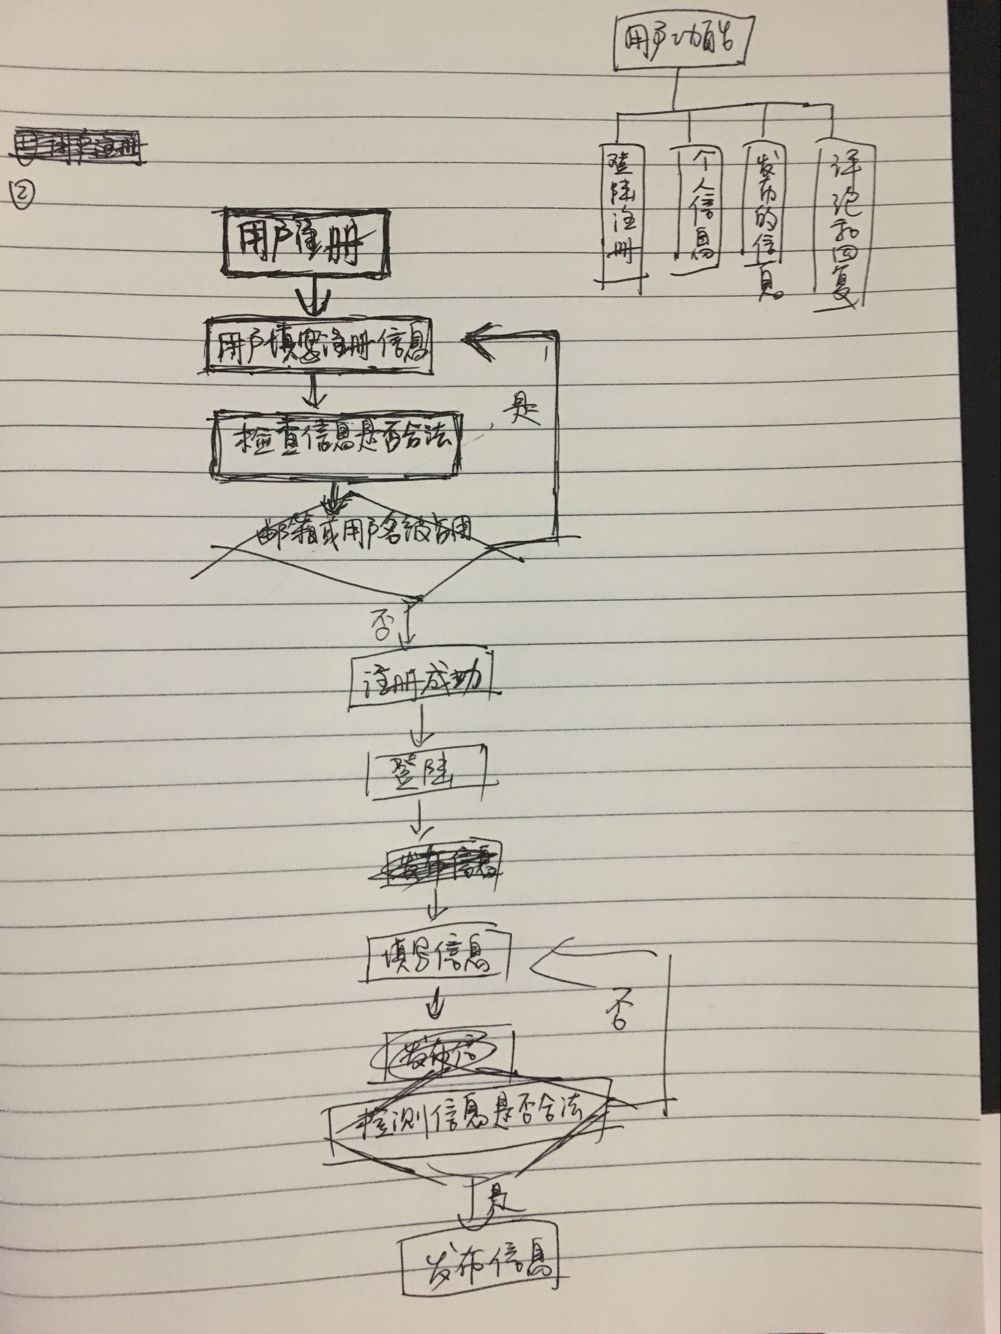 用户功能
登陆注册
个人信息
发布的信息
评论和回复
②
用户注册
用户填写注册信息
检查信息是否合法
是
邮箱或用户名被占用
否
注册成功
登陆
发布信息
填写信息
否
发布信
检测信息是否合法
是
发布信息